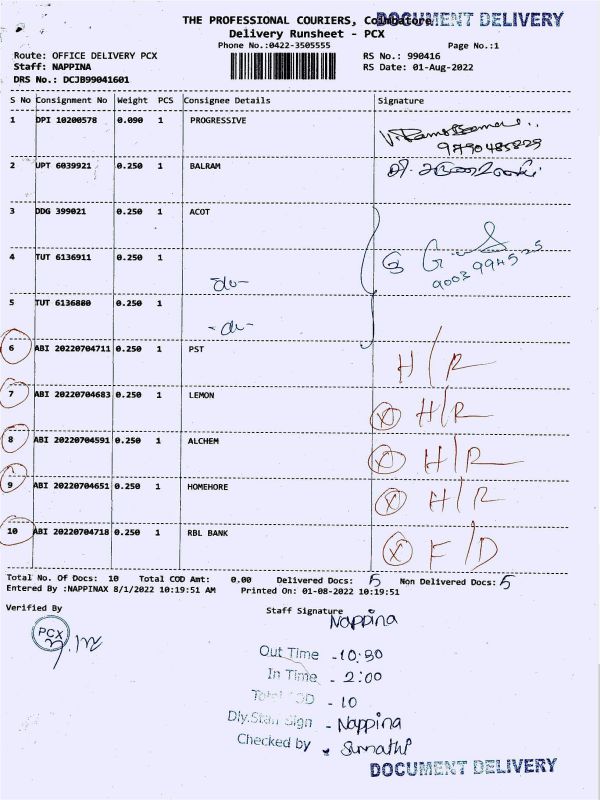 DOCUMENT DELIVERY
THE PROFESSIONAL COURIERS, Coimbatore
Delivery Runsheet - PCX
Phone No.:0422-3505555
Page No.:1
Route: OFFICE DELIVERY PCX
RS No.: 990416
Staff: NAPPINA
RS Date: 01-Aug-2022
DRS No.: DCJB99041601
S No Consignment No Weight PCS Consignee Details Signature
1 DPI 10200578 0.090 1 PROGRESSIVE
9790485829
2 UPT 6039921 0.250 1 BALRAM
3 DDG 399021 0.250 1 ACOT
4 TUT 6136911 0.250 1 -do-
9003994525
5 TUT 6136880 0.250 1 -do-
6 ABI 20220704711 0.250 1 PST H/R
7 ABI 20220704683 0.250 1 LEMON X H/R
8 ABI 20220704591 0.250 1 ALCHEM X H/R
9 ABI 20220704651 0.250 1 HOMEHORE X H/R
10 ABI 20220704718 0.250 1 RBL BANK X F/D
Total No. Of Docs: 10 Total COD Amt: 0.00 Delivered Docs: 5 Non Delivered Docs: 5
Entered By :NAPPINAX 8/1/2022 10:19:51 AM Printed On: 01-08-2022 10:19:51
Verified By
Staff Signature
Nappina
PCX
Out Time - 10:30
In Time - 2:00
Total - 10
Dly.Staff Sign - Nappina
Checked by - Sumathi
DOCUMENT DELIVERY